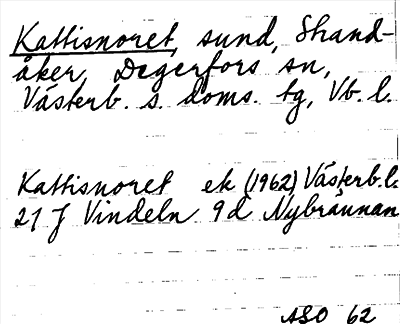 Kattisnoret, sund, Strand-
åker, Degerfors sn,
Västerb. s. doms. tg, Vb. l.
Kattisnoret ek (1962) Västerb. l.
21 J Vindeln 9d Nybrännan
ASO 62